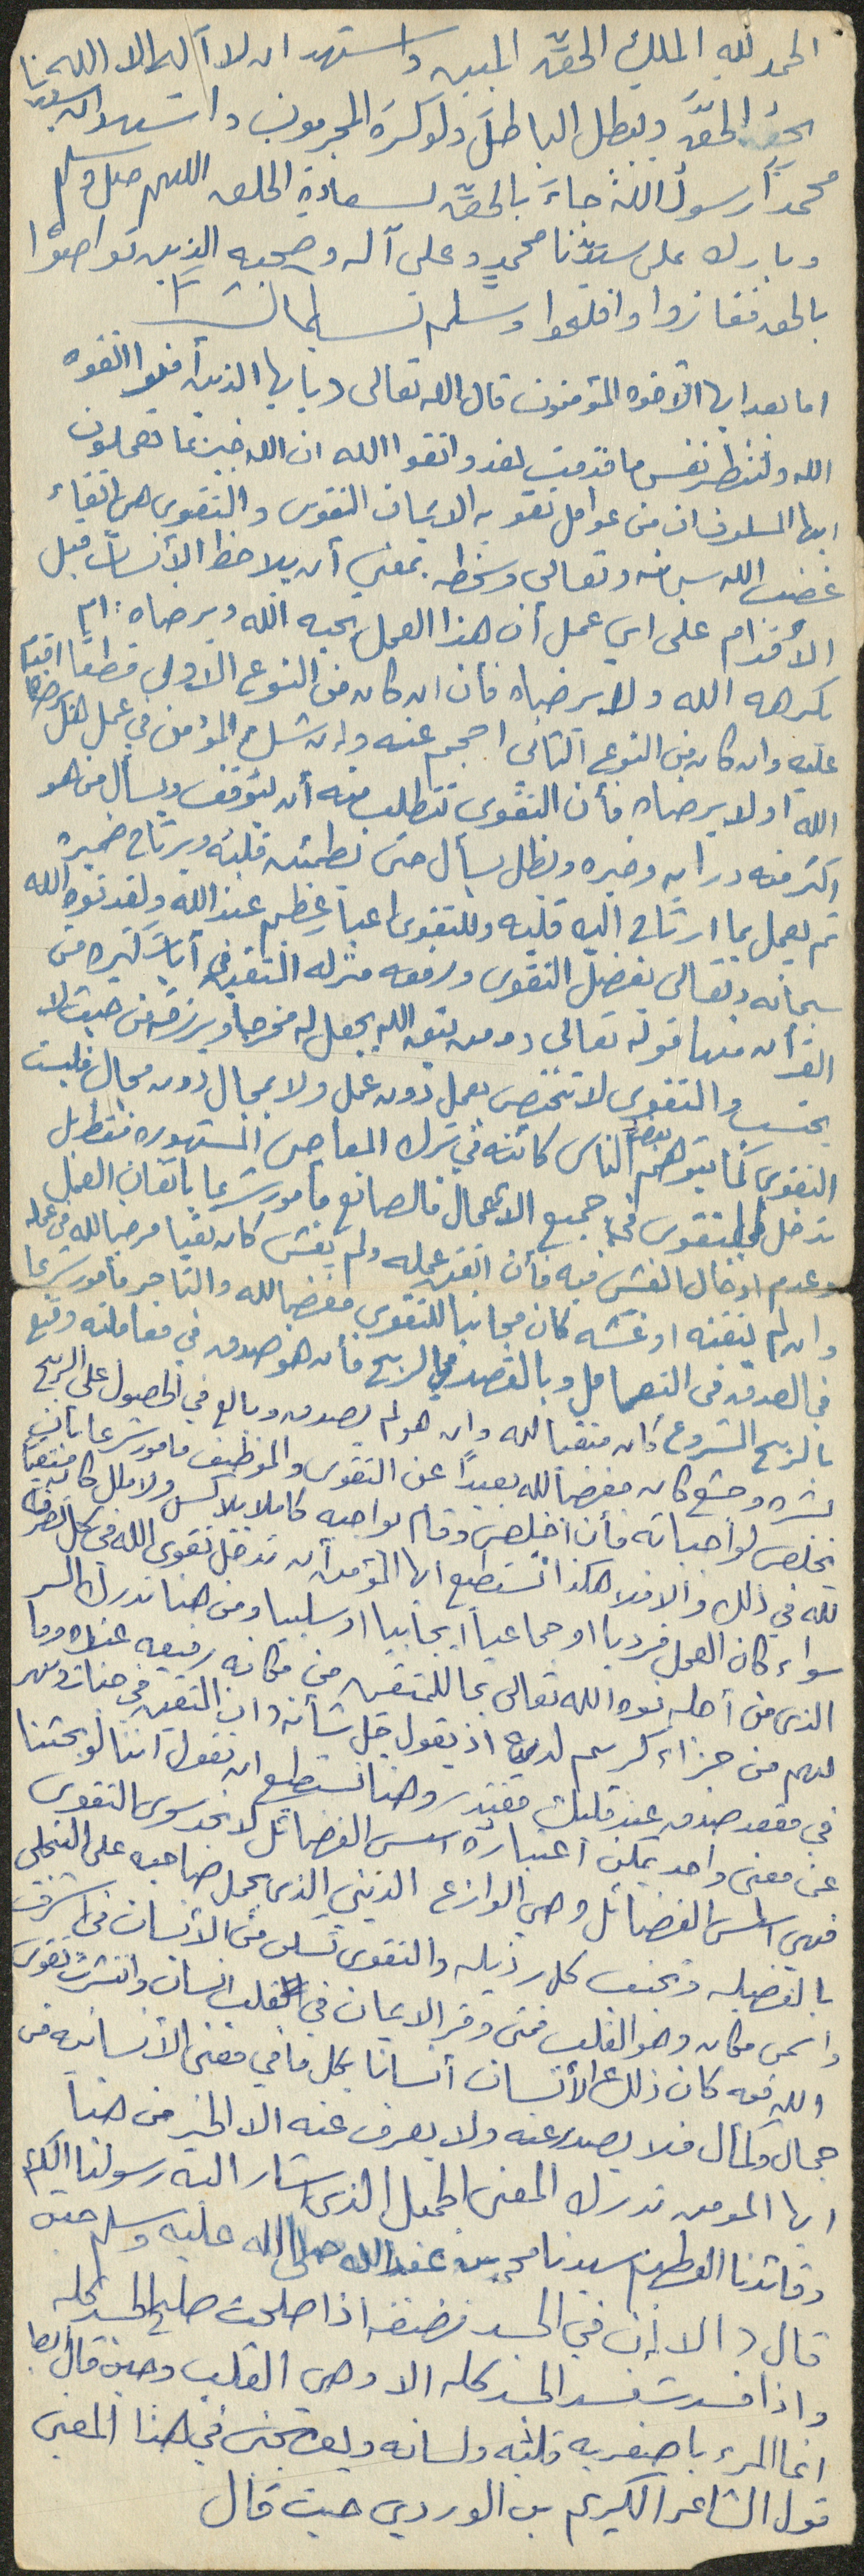 الحمد لله الملك الحق المبين واشهد ان لا آله الا الله
يحق الحقَّ ويبطل الباطلَ ولو كرَهَ المجرمون واشهد ان سيدنا
محمداً رسولُ اللهُ جاءَ بالحقّ لسعادةِ الخلق اللهم صل وسلم
وبارك على سيدّنا محمدٍ وعلى آله وصحبه الذين تواصوْا
بالحق ففازوا وافلحوا وسلم تسليما كثيرا
اما بعد ايها الآخوه المؤمنون قال الله تعالى (يا ايها الذين آمنوا اتقوه
الله ولتنظر نفس ما قدمت لغد واتقوا الله ان الله خبير بما تعملون
ايها المسلمون ان من عوامل تقويه الايمان التقوى والتقوى هي اتقاء
غضب الله سبحانه وتعالى وسخطه بمعنى أن يلاحظ الأنسان قبل
الأقدام على اي عمل أن هذا العمل يحبه الله ويرضاه : ام
يكرهه الله ولا يرضاه فأن كان من النوع الاولى قطعًا اقدم
عليه وان كان من النوع الثاني احجم عنه وان شك المؤمن في عمل هل يرضاه
الله او لا يرضاه فأن التقوى تتطلب منه أن يتوقف ويسأل من هو
اكثر منه درايه وخبره ويظل يسأل حتى يطمئن قلبَه ويرتاح ضميره
ثم يعمل بما ارتاح اليه قلبه وللتقوى اعباء عظم عند الله ولقد نوه الله
سبحانه وتعالى بفضل التقوى ورفعه منزله المتقين في آيات كثيره من
القرآن منها قوله تعالى (ومن يتق الله يجعل له مخرجا ويرزقه من حيث لا
يحتسب والتقوى لا تختص بعمل دون عمل ولا بمجال دون مجال فليست
التقوى كما يتوهم بعض الناس كائنه في ترك المعاصى المشهوره فقط بل
تدخل التقوى في جميع الاعمال فالصانع مأمور شرعا بأتقان العمل
وعدم ادخال الغش فيه فأن اتقن عمله ولم يغش كان تقيا مرضيا لله في عمله
وان لم يتقنه او غشه كان مجانبا للتقوى مغضبا لله والتاجر مأمور شرعا
في الصدق في التعامل وبالقصد في الربح فأن هو صدق في معاملته وقنع
بالربح المشروع كان متقيا لله وان هو لم يصدق وبالغ في الحصول على الربح
بشره وجشع كان مغضبا لله بعيداً عن التقوى والموظف مامور شرعا بأن
يخلص لواجباته فأن أخلص وقام بواجبه كاملا بلا كسل ولا ملل كان متقيا
لله في ذلك والا فلا هكذا تستطيع ايها المؤمن أن تدخل تقوى الله في كل تصرفاتك
سواء كان العمل فرديا او جماعياً ايجابيا او سلبيا ومن هنا ندرك السر
الذى من أجله نوه الله تعالى بما للمتقين من مكانه رفيعه عنده وما
لهم من جزاء كريم لديه اذ يقول جل شأنه (ان المتقين في جنات ونهر
في مقعد صدق عند مليك مقتدر) وهنا نستطيع ان نقول اننا لو بحثنا
عن معنى واحد يمكن اعتباره اسس الفضائل لا نجد سوى التقوى
فهي اساس الفضائل وهي الوازع الديني الذي يحمل صاحبه على التحلى
بالفضيله وتجنب كل رذيله والتقوى تسكن من الأنسان في اشرف
واسمى مكان وهو القلب فمتى وقر الايمان في قلب انسان وانتشرت تقوى
الله فيه كان ذلك الأنسان أنسانا بكل ما في معنى الأنسانيه من
جمال وكمال فلا يصدر عنه ولا يعرف عنه الا الخير من هنا
ايها المومن ندرك المعنى الجميل الذى اشار اليه رسولنا الكريم
وقائدنا العظيم سيدنا محمد بن عبد الله صلى الله عليه وسلم حين
قال (الا إن في الجسد مضغه اذا صلحت صلح الجسد كله
واذا فسدت فسد الجسد كله الا وهى القلب وحين قال ايضا
انما المرء بأصغريه قلبَه ولسانه ويعجبنى في هذا المعنى
قول الشاعر الكريم بن الوردي حيث قال